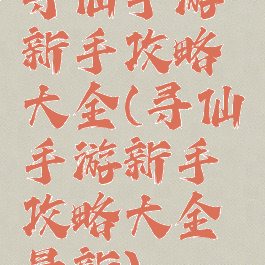 寻仙手游
新手攻略
大全(寻仙
手游新手
攻略大全
最新)